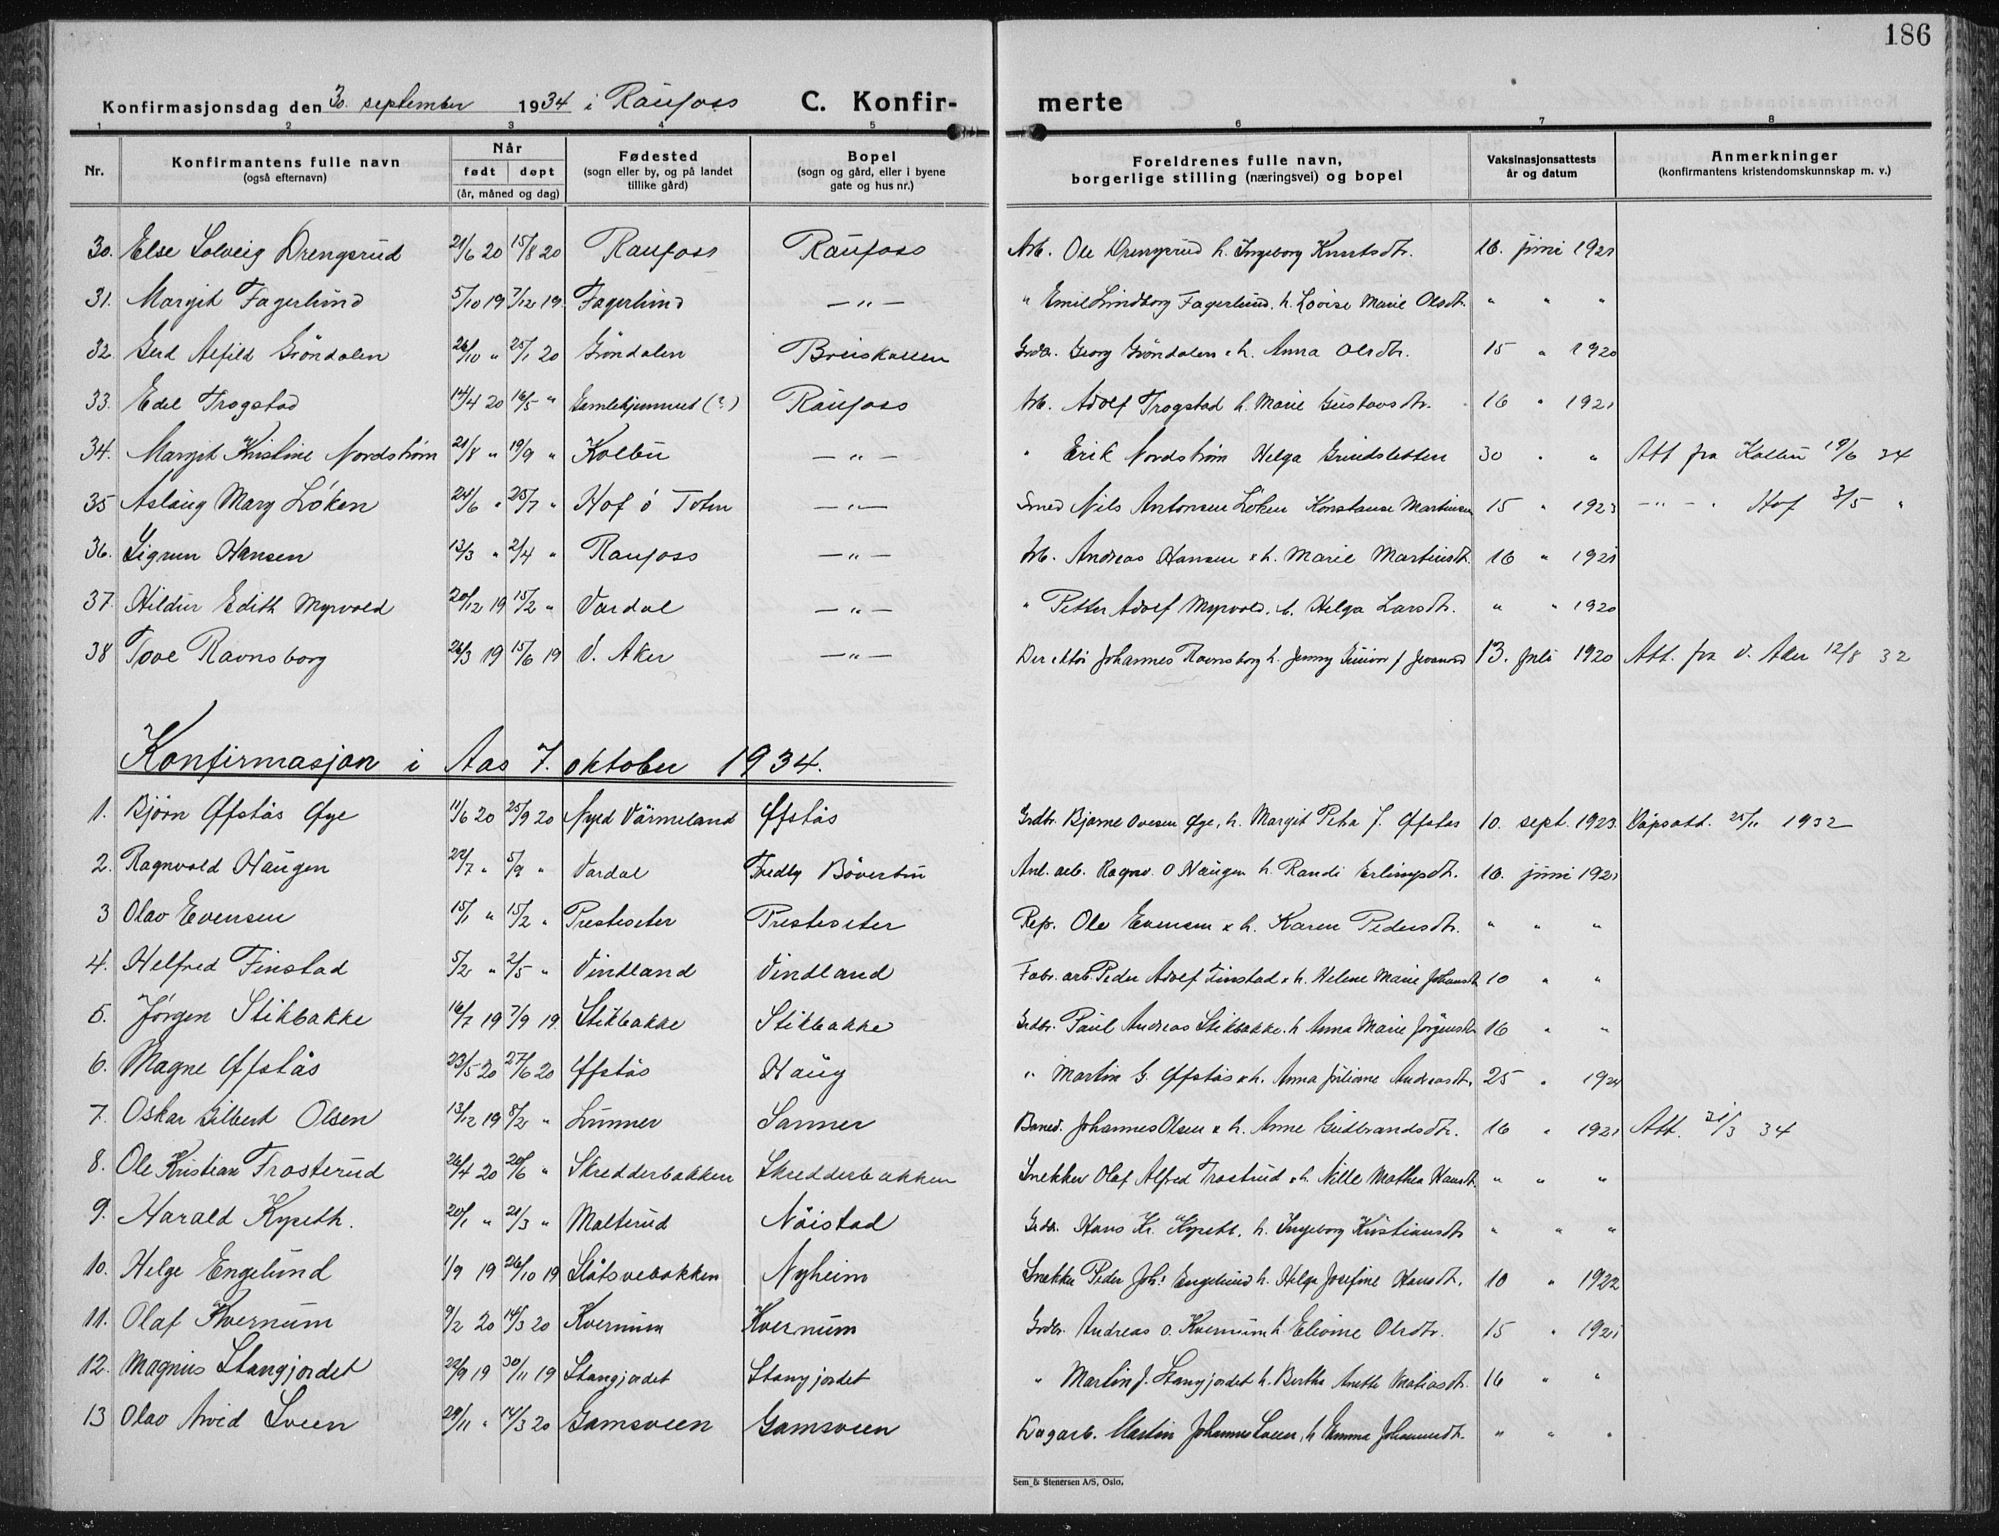 186
Konfirmasjonsdag den 30. september 1934 i Raufoss C. Konfir- merte
1 2 3 4 5 6 7 8
Nr. Konfirmantens fulle navn (også efternavn) Når født døpt (år, måned og dag) Fødested (sogn eller by, og på landet tillike gård) Bopel (sogn og gård, eller i byene gate og hus nr.) Foreldrenes fulle navn, borgerlige stilling (næringsvei) og bopel Vaksinasjonsattests år og datum Anmerkninger (konfirmantens kristendomskunnskap m. v.)
30. Else Solveig Drengsrud 21/6 20 15/8 20 Raufoss Raufoss Arb. Ole Drengsrud h. Ingeborg Knutsdtr. 16. juni 1921
31. Margit Fagerlund 5/10 19 7/12 19. Fagerlund —"— " Emil Lindborg Fagerlund. h. Lovise Marie Olsdtr. " " "
32. Gerd Alfild Gröndalen 26/10 " 25/1 20 Gröndalen Breiskallen Grdbr. Georg Gröndalen & h. Anna Olsdtr. 15 " 1920
33. Edel Trogstad 14/4 20 16/5 " (?) Raufoss Arb. Adolf Trogstad h. Marie Gustavsdtr. 16 " 1921
34. Margit Kristine Nordstrøm 21/8 " 19/9 " Kolbu —"— " Erik Nordstrøm Helga Grindsletten 30 " " Att fra Kolbu 19/6 34
35 Aslaug Mary Løken 24/6 " 25/7 " Hof ö Toten —"— Smed Nils Antonsen Løken Konstanse Martinsen 15 " 1923 —"— " Hof 3/5 "
36. Sigrun Hansen 13/3 " 2/4 " Raufoss —"— Arb. Andreas Hansen & h. Marie Martinsdtr. 16 " 1921
37. Hildur Edith Myrvold 20/12 19 15/2 " Vardal —"— " Petter Adolf Myrvold. h. Helga Larsdtr. " " 1920
38 Tove Ravnsborg 26/3 19 15/6 19 V. Aker —"— Direktör Johannes Ravnsborg h. Jenny 13. juli 1920 Att. fra V. Aker 12/8 32
Konfirmasjon i Aas 7. oktober 1934.
1. Bjørn Øfstås Øye 11/6 20 25/9 20 Nyed Värmeland Øfstås Grdbr. Bjarne Ovesen Øye, h. Margit Petra J. Øfstås 10. sept. 1923. Dåpsatt. 25/11 1932
2. Ragnvald Haugen 22/7 " 5/9 " Vardal Fredly Böverbru Anl. arb. Ragnv. O Haugen h. Randi Erlingsdtr. 16. juni 1921
3 Olav Evensen 15/1 " 15/2 " Prestesæter Prestesæter Rep. Ole Evensen & h. Karen Pedersdtr. " " "
4. Helfred Finstad 5/2 " 2/5 " Vindland Vindland Fabr. arb Peder Adolf Finstad & h. Helene Marie Johansdtr 10 " "
5. Jørgen Stikbakke 16/7 19 7/9 19. Stikbakke Stikbakke Grdbr. Paul Andreas Stikbakke. h Anna Marie Jørgensdtr 16 " "
6. Magne Øfstås 23/5 20 27/6 20 Øfstås Haug " Martin G. Øfstås & h. Anna Juliane Andreasdtr. 25 " 1921
7. Oskar Gilbert Olsen 13/12 19 8/2 " Lunner Sanner Baned. Johannes Olsen & h. Anne Gudbrandsdtr. 16 " 1921 Att. 21/3 34
8. Ole Kristian Trosterud 26/4 20 20/6 " Skredderbakken Skredderbakken Snekker Olaf Alfred Trostrud & h Nille Mathea Hansdtr. " " "
9. Harald Kyseth. 20/1 " 21/3 " Malterud Nöistad Grdbr. Hans Kr. Kyseth. h. Ingeborg Kristiansdtr " " "
10. Helge Engelund 1/9 19 26/10 19 Slåtsvebakken Nyheim Snekker Peder Joh. Engelund h. Helga Josefine Hansdtr. 10 " 1922
11. Olaf Kvernum 9/2 20 14/3 20 Kvernum Kvernum Grdbr. Andreas O. Kvernum h. Olsdtr. 15 " 1921
12. Magnus Stangjordet 22/9 19 30/11 19 Stangjordet Stangjordet " Martin J. Stangjordet h. Berthe Anette Matiasdtr. 16 " "
13 Olav Arvid Sveen 29/11 " 14/3 20 Gamsveen Gamsveen Dagarb. Martin Johannes Sveen, h Emma Johannesdtr. " " "
Sem & Stenersen A/S, Oslo.